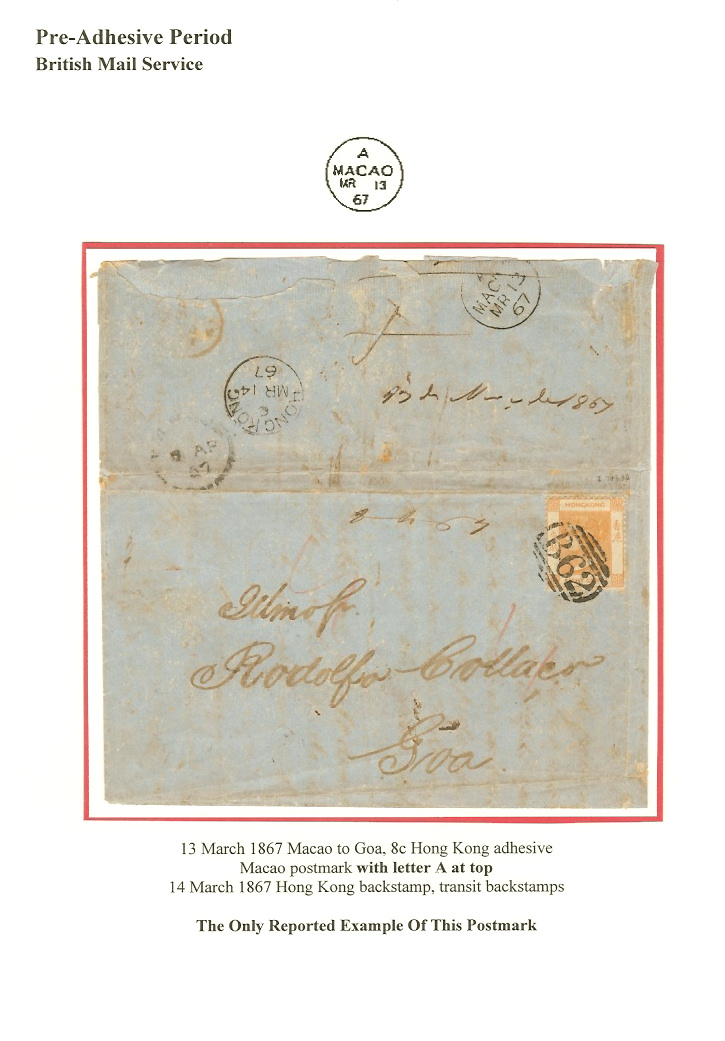 Pre-Adhesive Period
British Mail Service
A
MACAO
MR 13
67
MAC
MR 13
67
HONG KONG
C
MR 14
67
13 de 1867
AP
67
HONGKONG
B62
Illmo Sr.
Rodolfo Collaço
Goa
13 March 1867 Macao to Goa, 8c Hong Kong adhesive
Macao postmark with letter A at top
14 March 1867 Hong Kong backstamp, transit backstamps
The Only Reported Example Of This Postmark